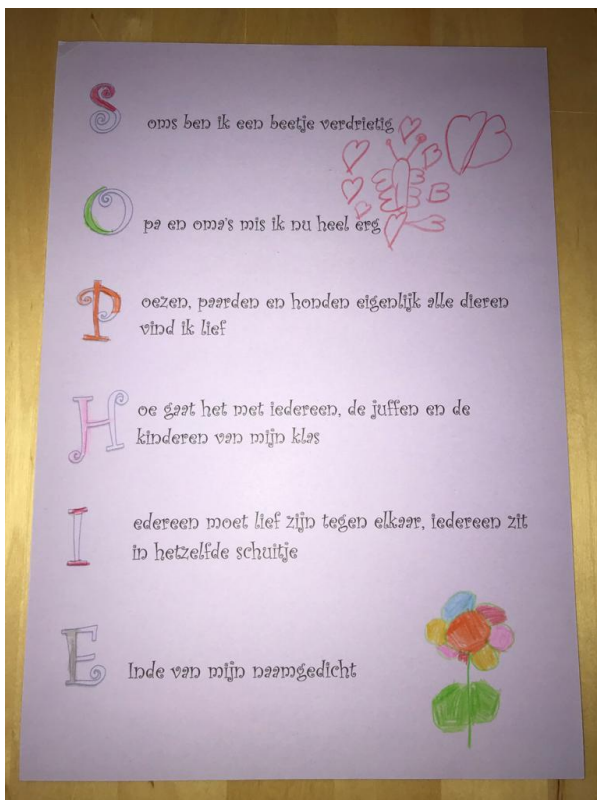 Soms ben ik een beetje verdrietig
Opa en oma's mis ik nu heel erg
Poezen, paarden en honden eigenlijk alle dieren
vind ik lief
Hoe gaat het met iedereen, de juffen en de
kinderen van mijn klas
Iedereen moet lief zijn tegen elkaar, iedereen zit
in hetzelfde schuitje
EInde van mijn naamgedicht